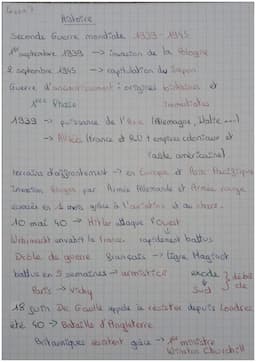 Leçon
Histoire
Seconde Guerre mondiale 1939 - 1945
1er septembre 1939 -> invasion de la Pologne
2 septembre 1945 -> capitulation du Japon
Guerre d'anéantissement : origines lointaines et
1ère Phase immédiates
1939 -> puissance de l'Axe (Allemagne, Italie ...)
-> Alliés (France et RU + empires coloniaux et
l'aide américaine)
terrains d'affrontement -> en Europe et Asie-Pacifique
Invasion éclair par Armée Allemande et Armée rouge
en 1 mois grâce à l'aviation et au chars.
10 mai 40 -> Hitler attaque l'ouest
Wehrmacht envahit la France rapidement battus
Drôle de guerre français -> ligne Maginot
battus en 5 semaines -> armistice exode début
Paris -> Vichy Sud de
18 juin De Gaulle appele à résister depuis Londres
été 40 -> Bataille d'Angleterre
Britanniques resistent grâce -> 1er ministre
Winston Churchill